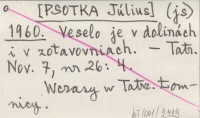 [PSOTKA Július] (js)
1960. Veselo je v dolinách
i v zotavovniach. – Tatr.
Nov. 7, nr 26: 4.
Wczasy w Tatrz. Łom-
nicy.